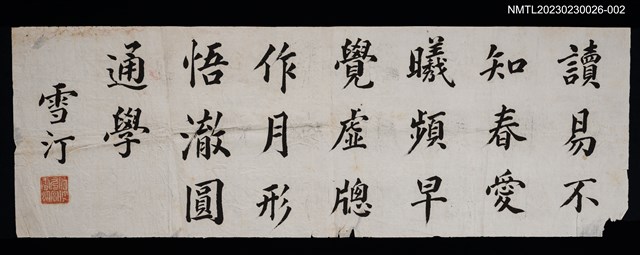 NMTL20230230026-002
讀易不
知春愛
曦頻早
覺虛牕
作月形
悟澈圓
通學
雪汀